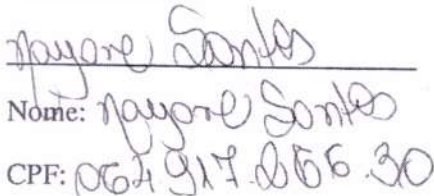 Nayane Santos
Nome: Nayane Santos
CPF: 064 917.266.30